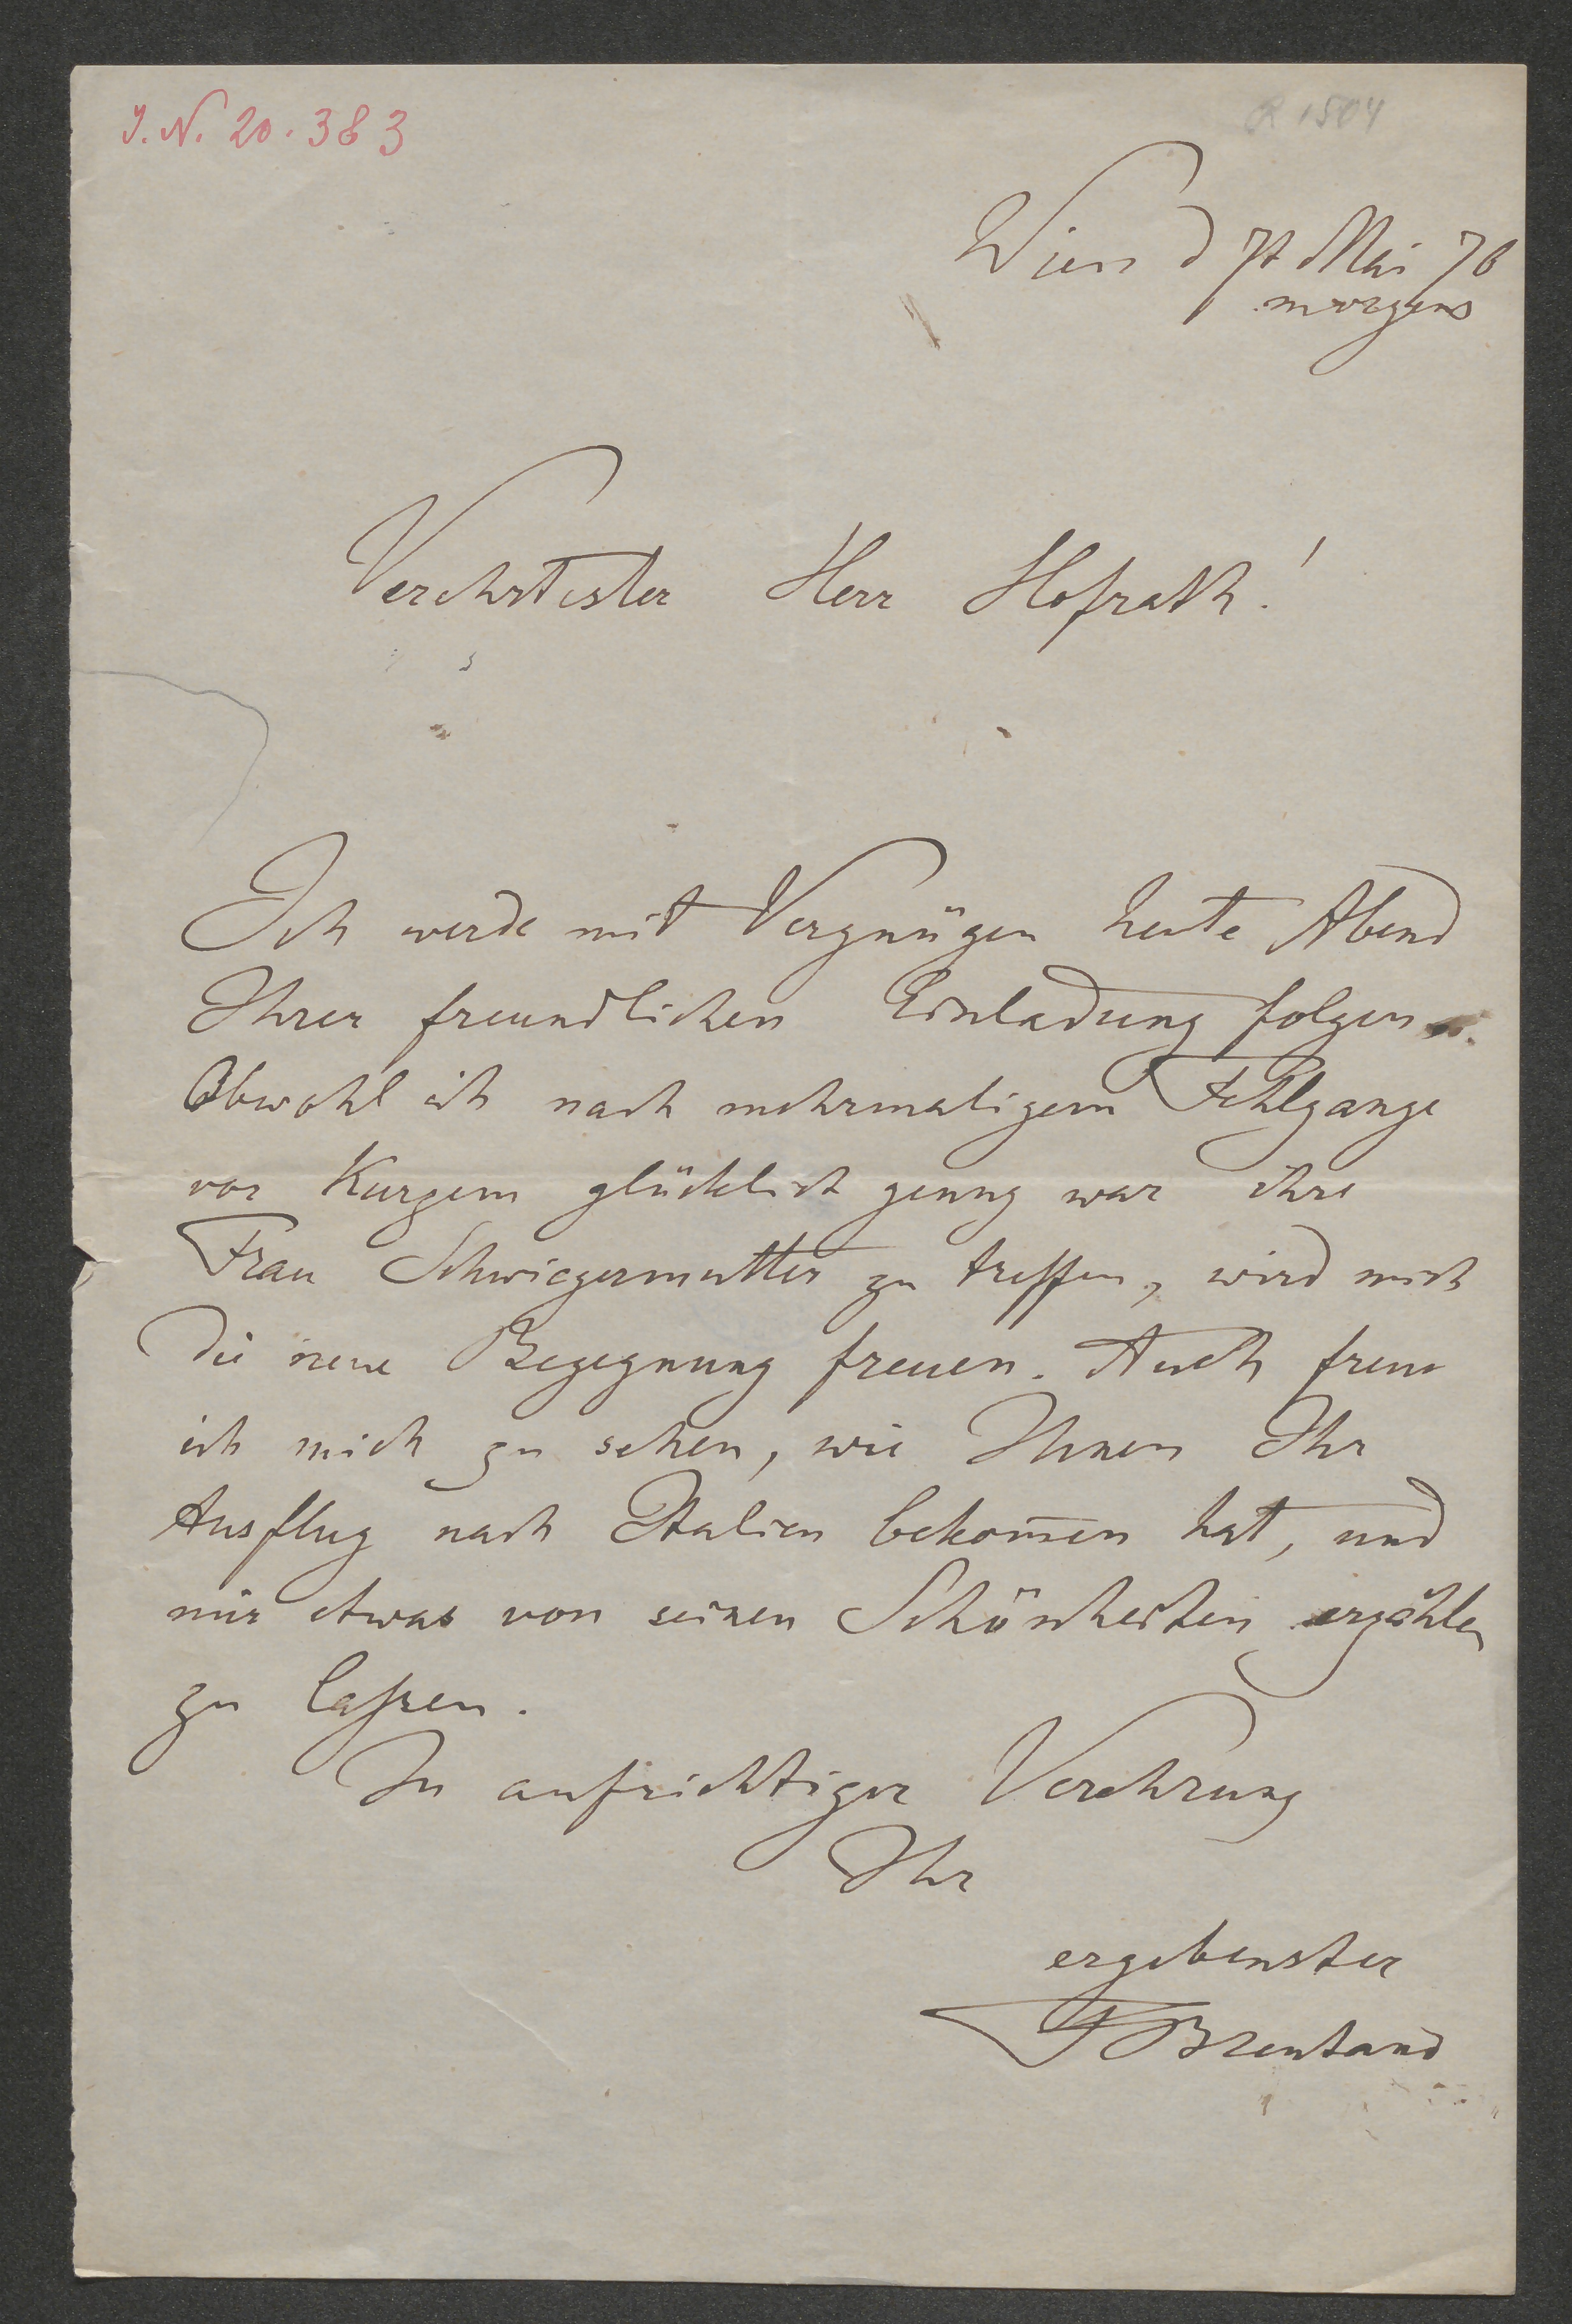 J. N. 20.383
R 1504
Wien d 7t Mai 76
morgens
Verehrtester Herr Hofrath!
Ich werde mit Vergnügen heute Abend
Ihrer freundlichen Einladung folgen.
Obwohl ich nach mehrmaligem Fehlgange
vor Kurzem glücklich genug war ihre
Frau Schwiegermutter zu treffen, wird mich
die neue Begegnung freuen. Auch freue
ich mich zu sehen, wie Ihnen Ihr
Ausflug nach Italien bekom̅en hat, und
mir etwas von seinen Schönheiten erzählen
zu laßen.
In aufrichtiger Verehrung
Ihr
ergebenster
F Brentano